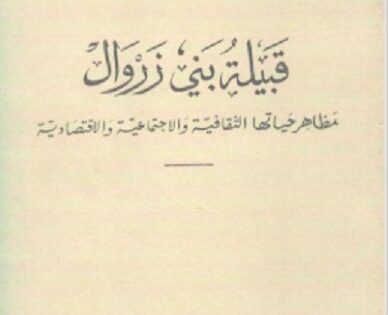 قبيلة بني زروال
مظاهر حياتها الثقافية والاجتماعية والاقتصادية